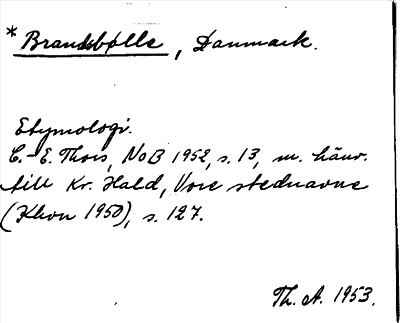 * Brandsbølle, Danmark.
Etymologi.
C.-E. Thors, NoB 1952, s. 13, m. hänv.
till Kr. Hald, Vore stednavne
(Khvn 1950), s. 127.
Th. A. 1953.